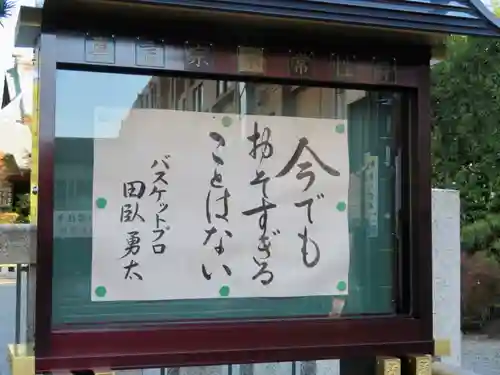 今でも
おそすぎる
ことはない
バスケットプロ
田臥 勇太